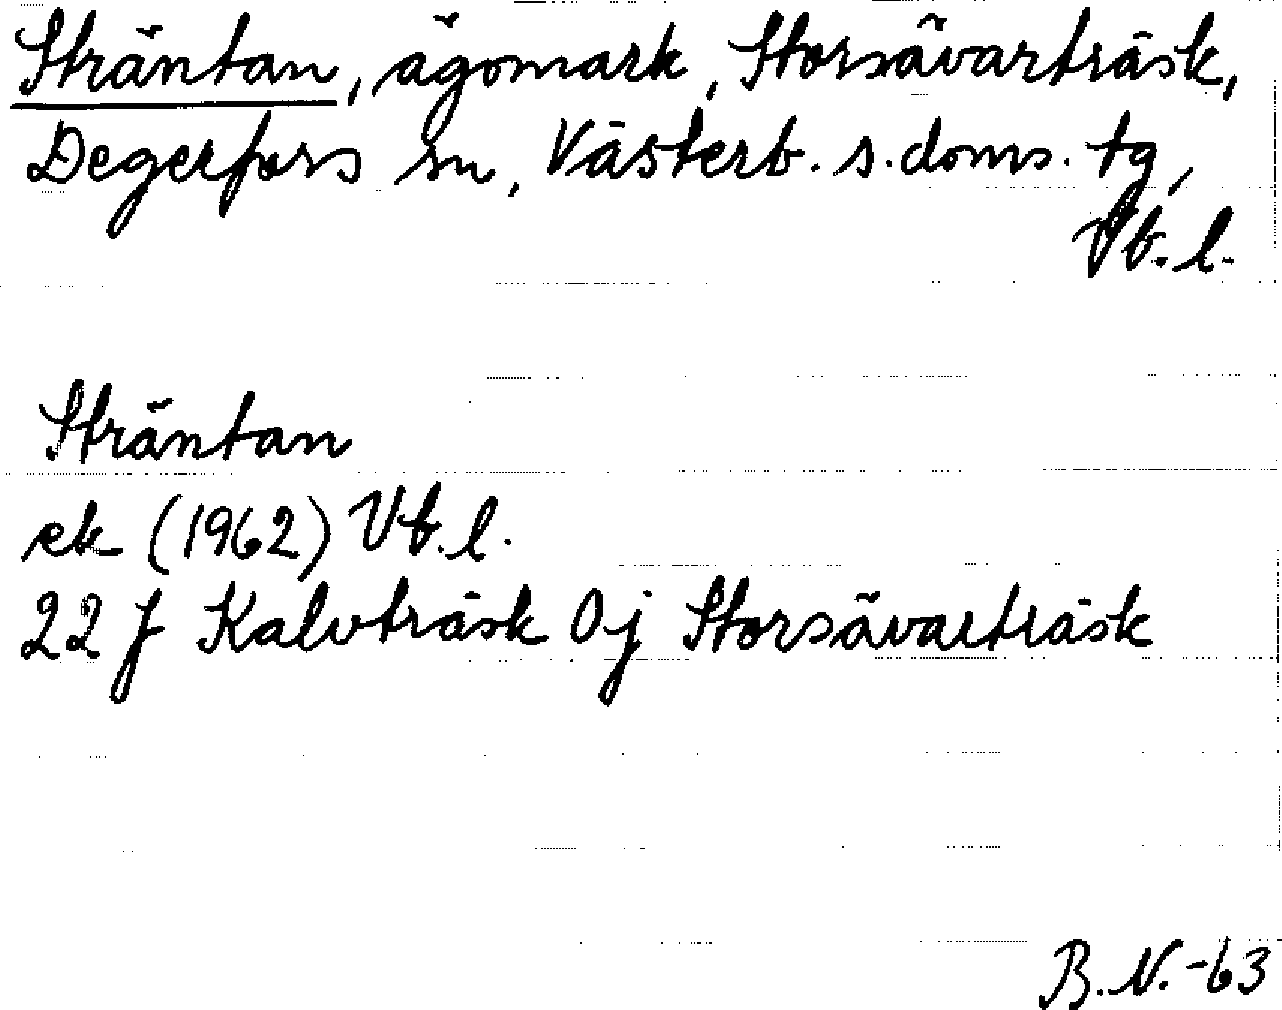 Sträntan, ägomark, Storsävarträsk,
Degerfors sn, Västerb. s. doms. tg,
Vb. l.
Sträntan
ek (1962) Vb. l.
22 J Kalvträsk 0j Storsävarträsk
B.N.-63